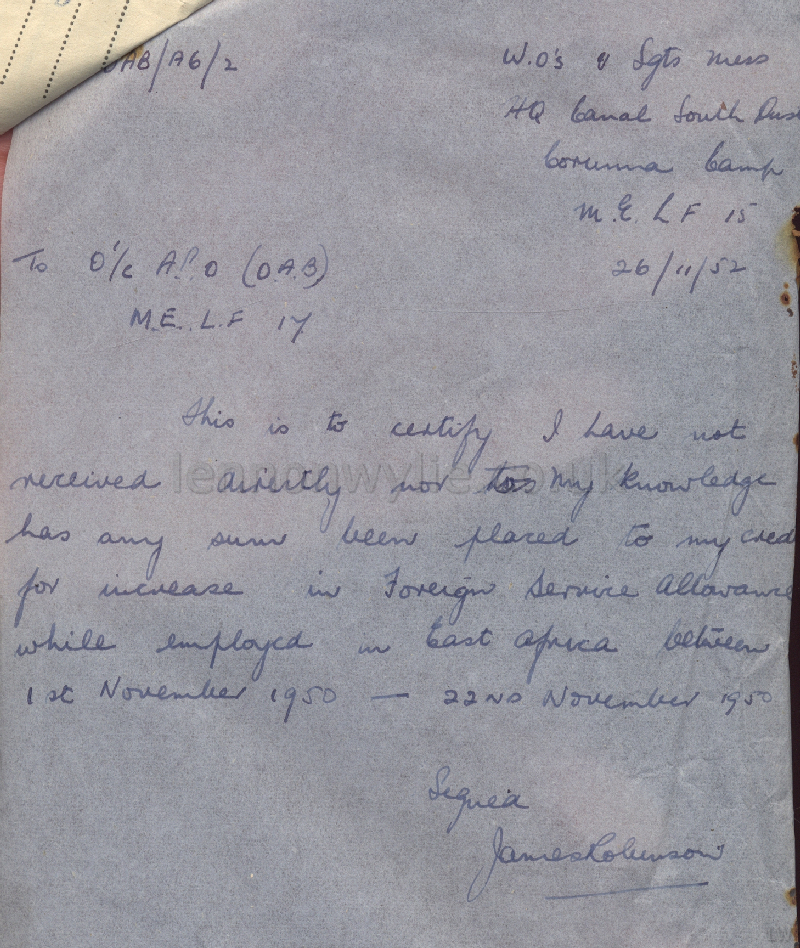 OAB/AG/2
W.O's & Sgts Mess
HQ Canal South Dist
Corunna Camp
M.E. L F 15
26/11/52
To O i/c A.P.O (O.A.B)
M.E. L.F 17
This is to certify I have not
received directly nor to my knowledge
has any sum been placed to my cred
for increase in Foreign Service Allowance
while employed in East Africa between
1st November 1950 — 22ND November 1950
Signed
James Robinson
lennonwylie.co.uk